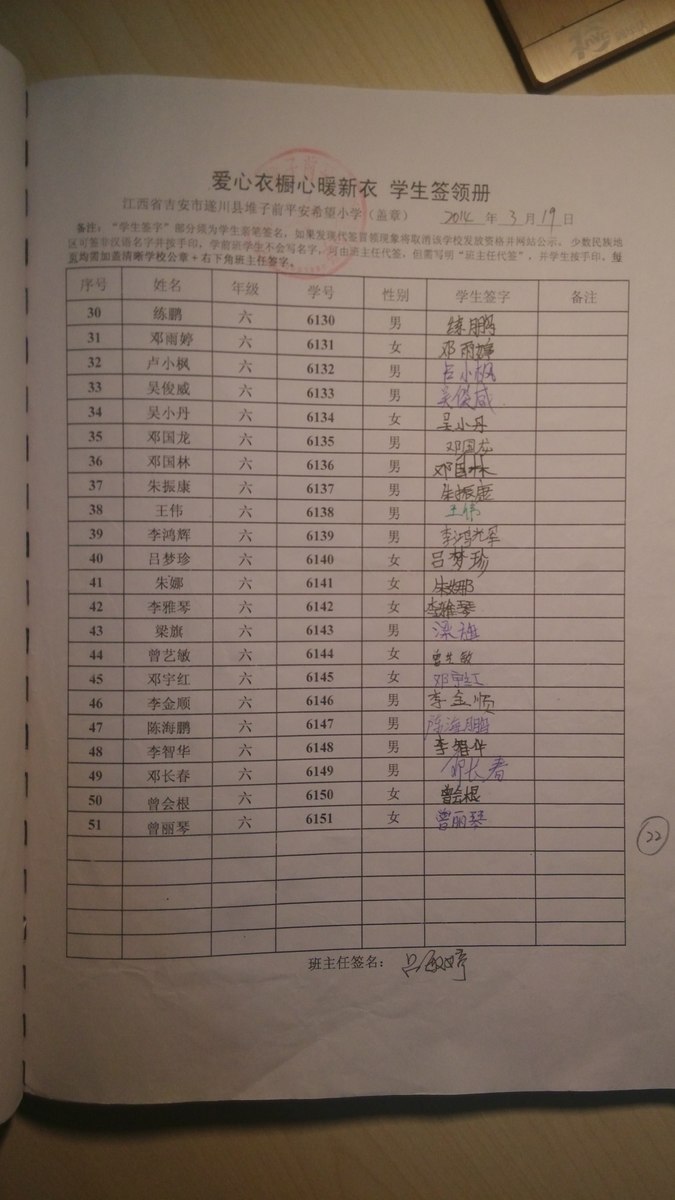 爱心衣橱心暖新衣 学生签领册
江西省吉安市遂川县堆子前平安希望小学（盖章） 2014 年 3 月 19 日
备注：“学生签字”部分须为学生亲笔签名，如果发现代签冒领现象将取消该学校发放资格并网站公示。少数民族地
区可签非汉语名字并按手印，学前班学生不会写名字，可由班主任代签，但需写明“班主任代签”，并学生按手印。每
页均需加盖清晰学校公章＋右下角班主任签字。
序号 姓名 年级 学号 性别 学生签字 备注
30 练鹏 六 6130 男 练鹏
31 邓雨婷 六 6131 女 邓雨婷
32 卢小枫 六 6132 男 占小枫
33 吴俊威 六 6133 男 吴俊威
34 吴小丹 六 6134 女 吴小丹
35 邓国龙 六 6135 男 邓国龙
36 邓国林 六 6136 男 邓国林
37 朱振康 六 6137 男 朱振康
38 王伟 六 6138 男 王伟
39 李鸿辉 六 6139 男 李鸿辉
40 吕梦珍 六 6140 女 吕梦珍
41 朱娜 六 6141 女 朱娜
42 李雅琴 六 6142 女 李雅琴
43 梁旗 六 6143 男 梁旗
44 曾艺敏 六 6144 女 曾艺敏
45 邓宇红 六 6145 女 邓宇红
46 李金顺 六 6146 男 李金顺
47 陈海鹏 六 6147 男 陈海鹏
48 李智华 六 6148 男 李智华
49 邓长春 六 6149 男 邓长春
50 曾会根 六 6150 女 曾会根
51 曾丽琴 六 6151 女 曾丽琴
22
班主任签名：